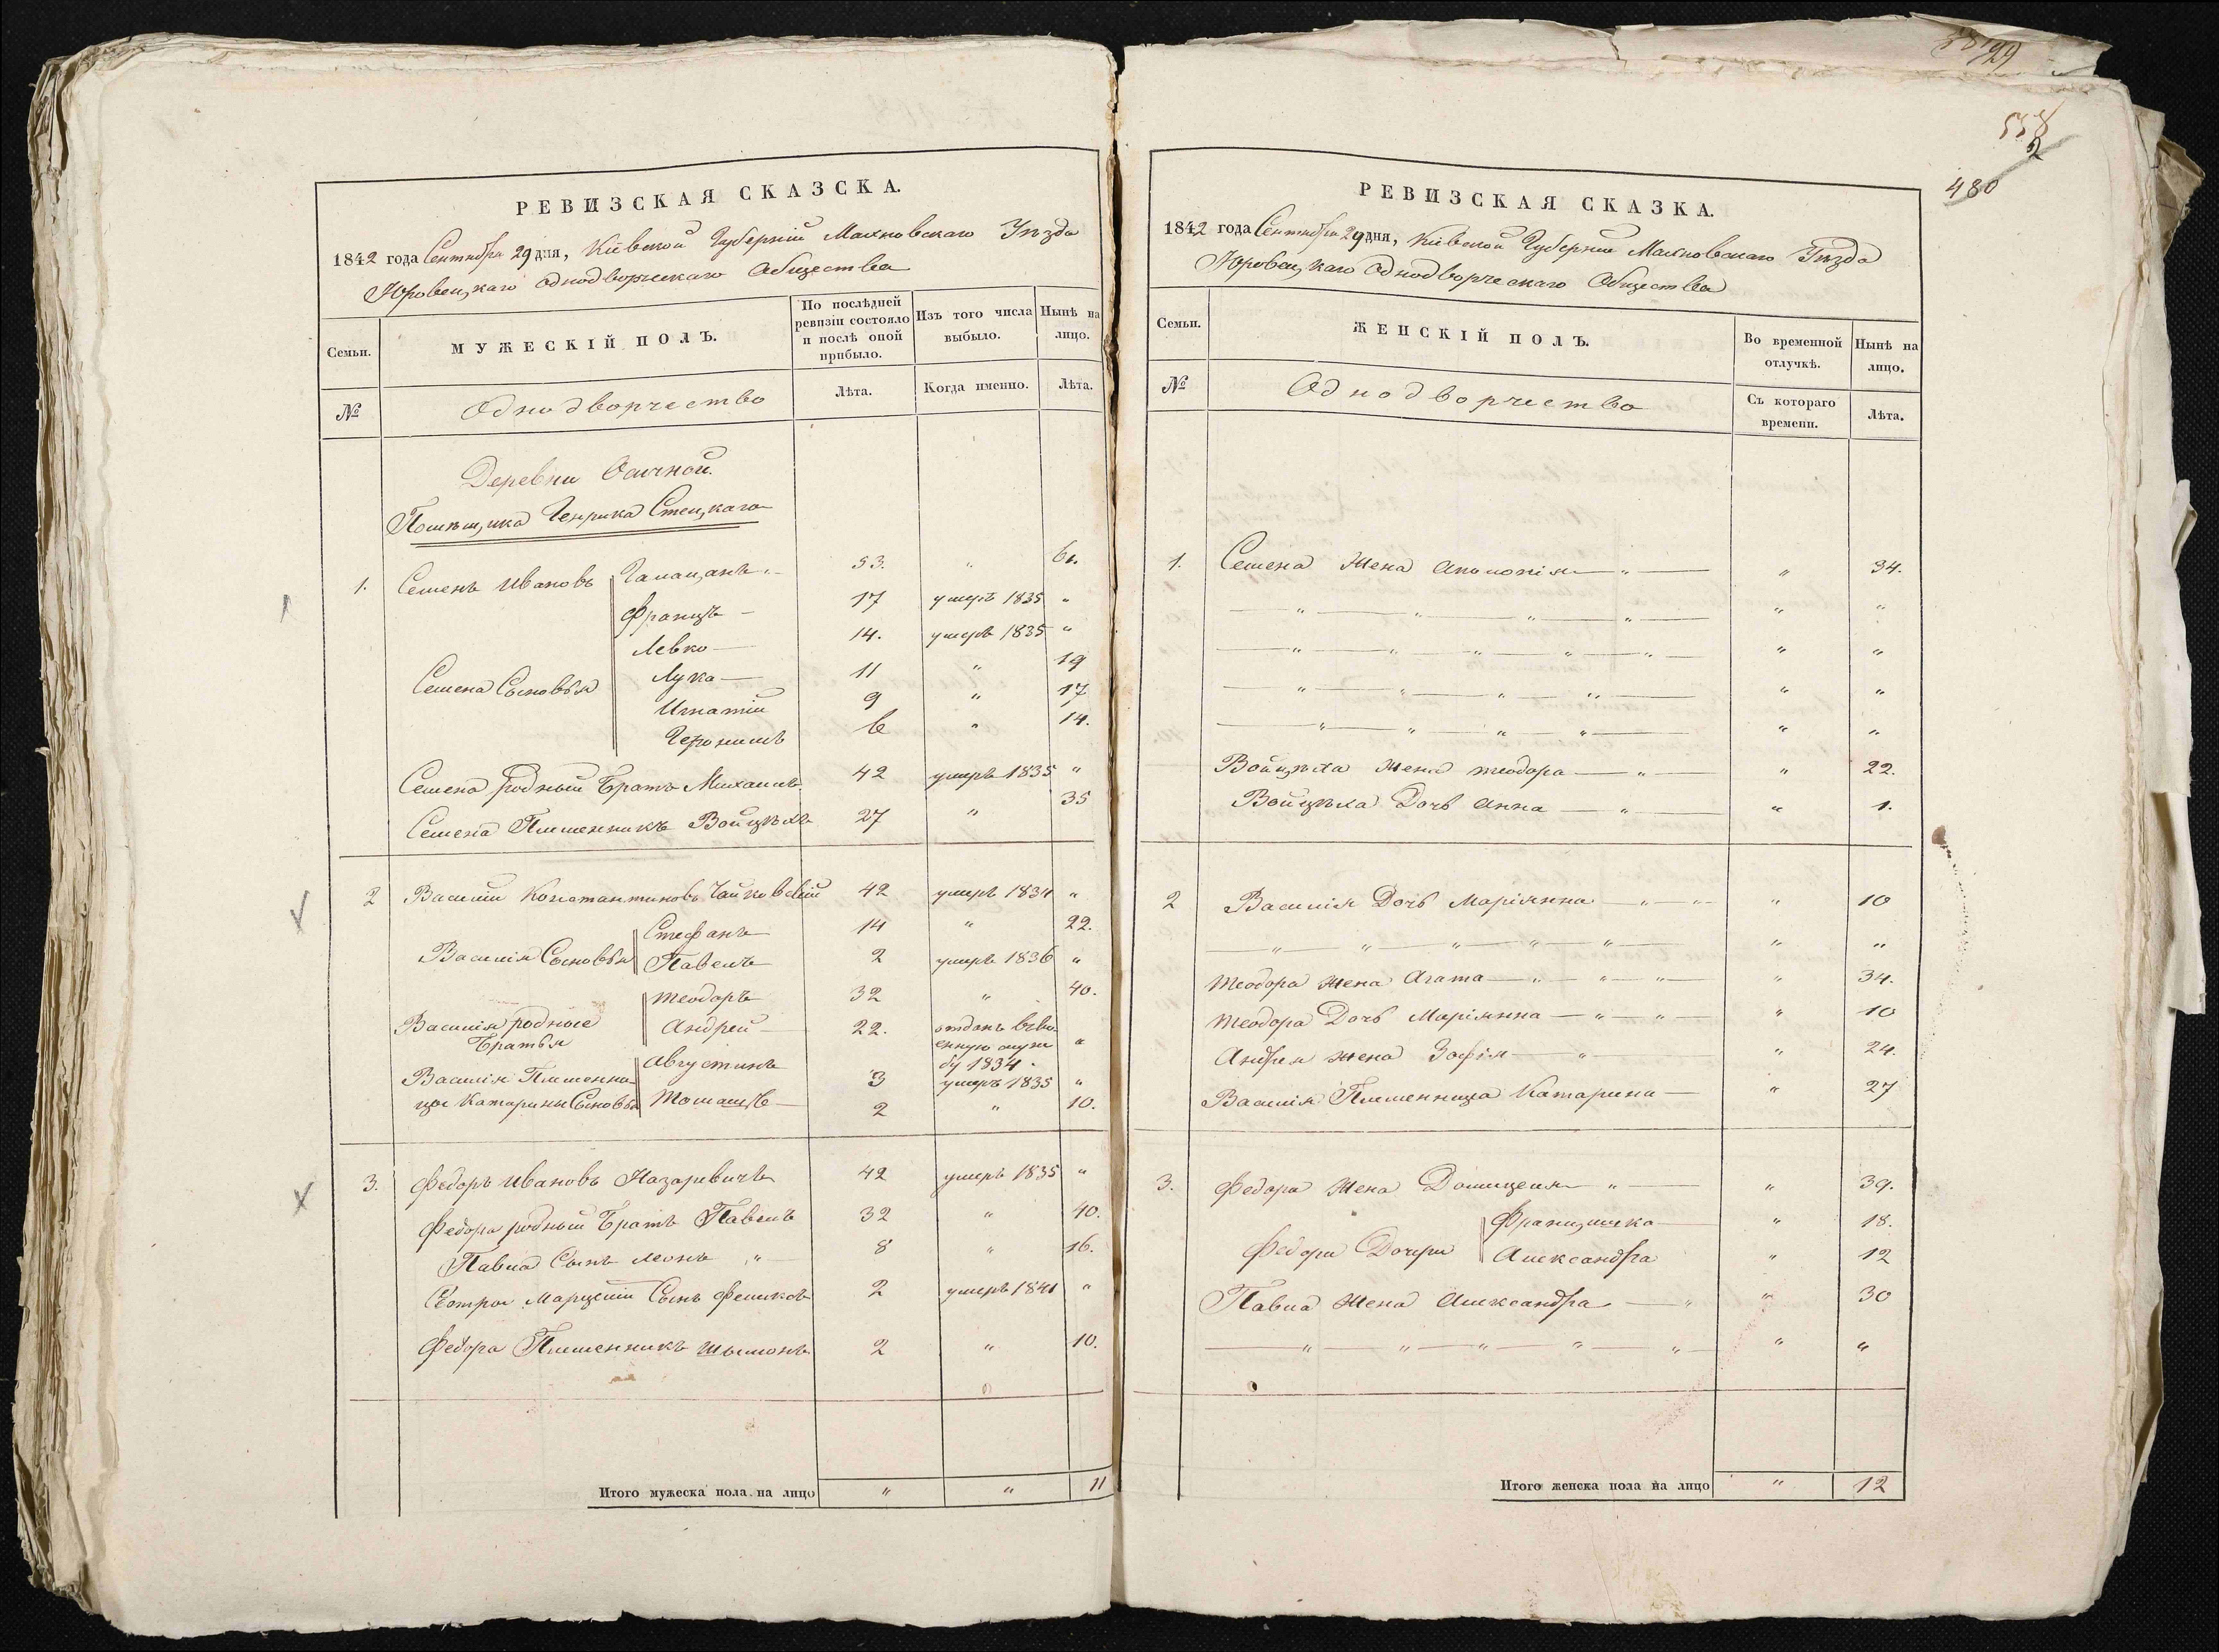 РЕВИЗСКАЯ СКАЗСКА.
1842 года Сентября 29 дня, Кіевской Губерніи Махновскаго Уѣзда
Юровецкаго однодворческаго Общества
Семьи.
МУЖЕСКІЙ ПОЛЪ.
По послѣдней ревизіи состояло и послѣ оной прибыло.
Изъ того числа выбыло.
Нынѣ на лицо.
№
Однодворчество
Лѣта.
Когда именно.
Лѣта.
Деревни Осичной.
Помѣщика Генрика Стецкаго
1. Семенъ Ивановъ 53. " 61.
Францъ 17 умеръ 1835 "
Левко 14. умеръ 1835 "
Семена Сыновья Лука 11 " 19
Игнатій 9 " 17
Геронимъ 6 " 14.
Семена родный Братъ Михаилъ 42 умеръ 1835 "
Семена Племенникъ Войцѣхъ 27 " 35
2 Василій Константиновъ Чайковскій 42 умеръ 1834 "
Стефанъ 14 " 22.
Василія Сыновья Павелъ 2 умеръ 1836 "
Теодоръ 32 " 40.
Василія родные Братья Андрей 22. отданъ въ во-
енную служ "
бу 1834.
Августинъ 3 умеръ 1835 "
Василія Племенни-
цы Катарины Сыновья Томашъ 2 " 10.
3. Федоръ Ивановъ Назаревичъ 42 умеръ 1835 "
Федора родный Братъ Павелъ 32 " 40.
Павла Сынъ Леонъ " 8 " 16.
Сестры Марцели Сынъ Феликсъ 2 умеръ 1841 "
Федора Племенникъ Шымонъ 2 " 10.
Итого мужеска пола на лицо " " 11
558
2
480
РЕВИЗСКАЯ СКАЗКА.
1842 года Сентября 29 дня, Кіевской Губерніи Махновскаго Уѣзда
Юровецкаго Однодворческаго Общества
Семьи.
ЖЕНСКІЙ ПОЛЪ.
Во временной отлучкѣ.
Нынѣ на лицо.
№
Однодворчество
Съ котораго времени.
Лѣта.
1. Семена Жена Аполонія " " 34.
" " " " " "
" " " " " " "
" " " " " "
" " " " " "
Войцѣха Жена Теодора " " 22.
Войцѣха Дочь Анна " " 1.
2 Василія Дочь Маріянна " " " 10
" " " " " " "
Теодора Жена Агата " " " " 34.
Теодора Дочь Маріянна " " " 10
Андрея Жена Зофія " " 24.
Василія Племенница Катарина " 27
3. Федора Жена Домицеля " " 39.
Францишка " 18.
Федора Дочери Александра " 12
Павла Жена Александра " " 30
" " " " " " "
Итого женска пола на лицо " 12